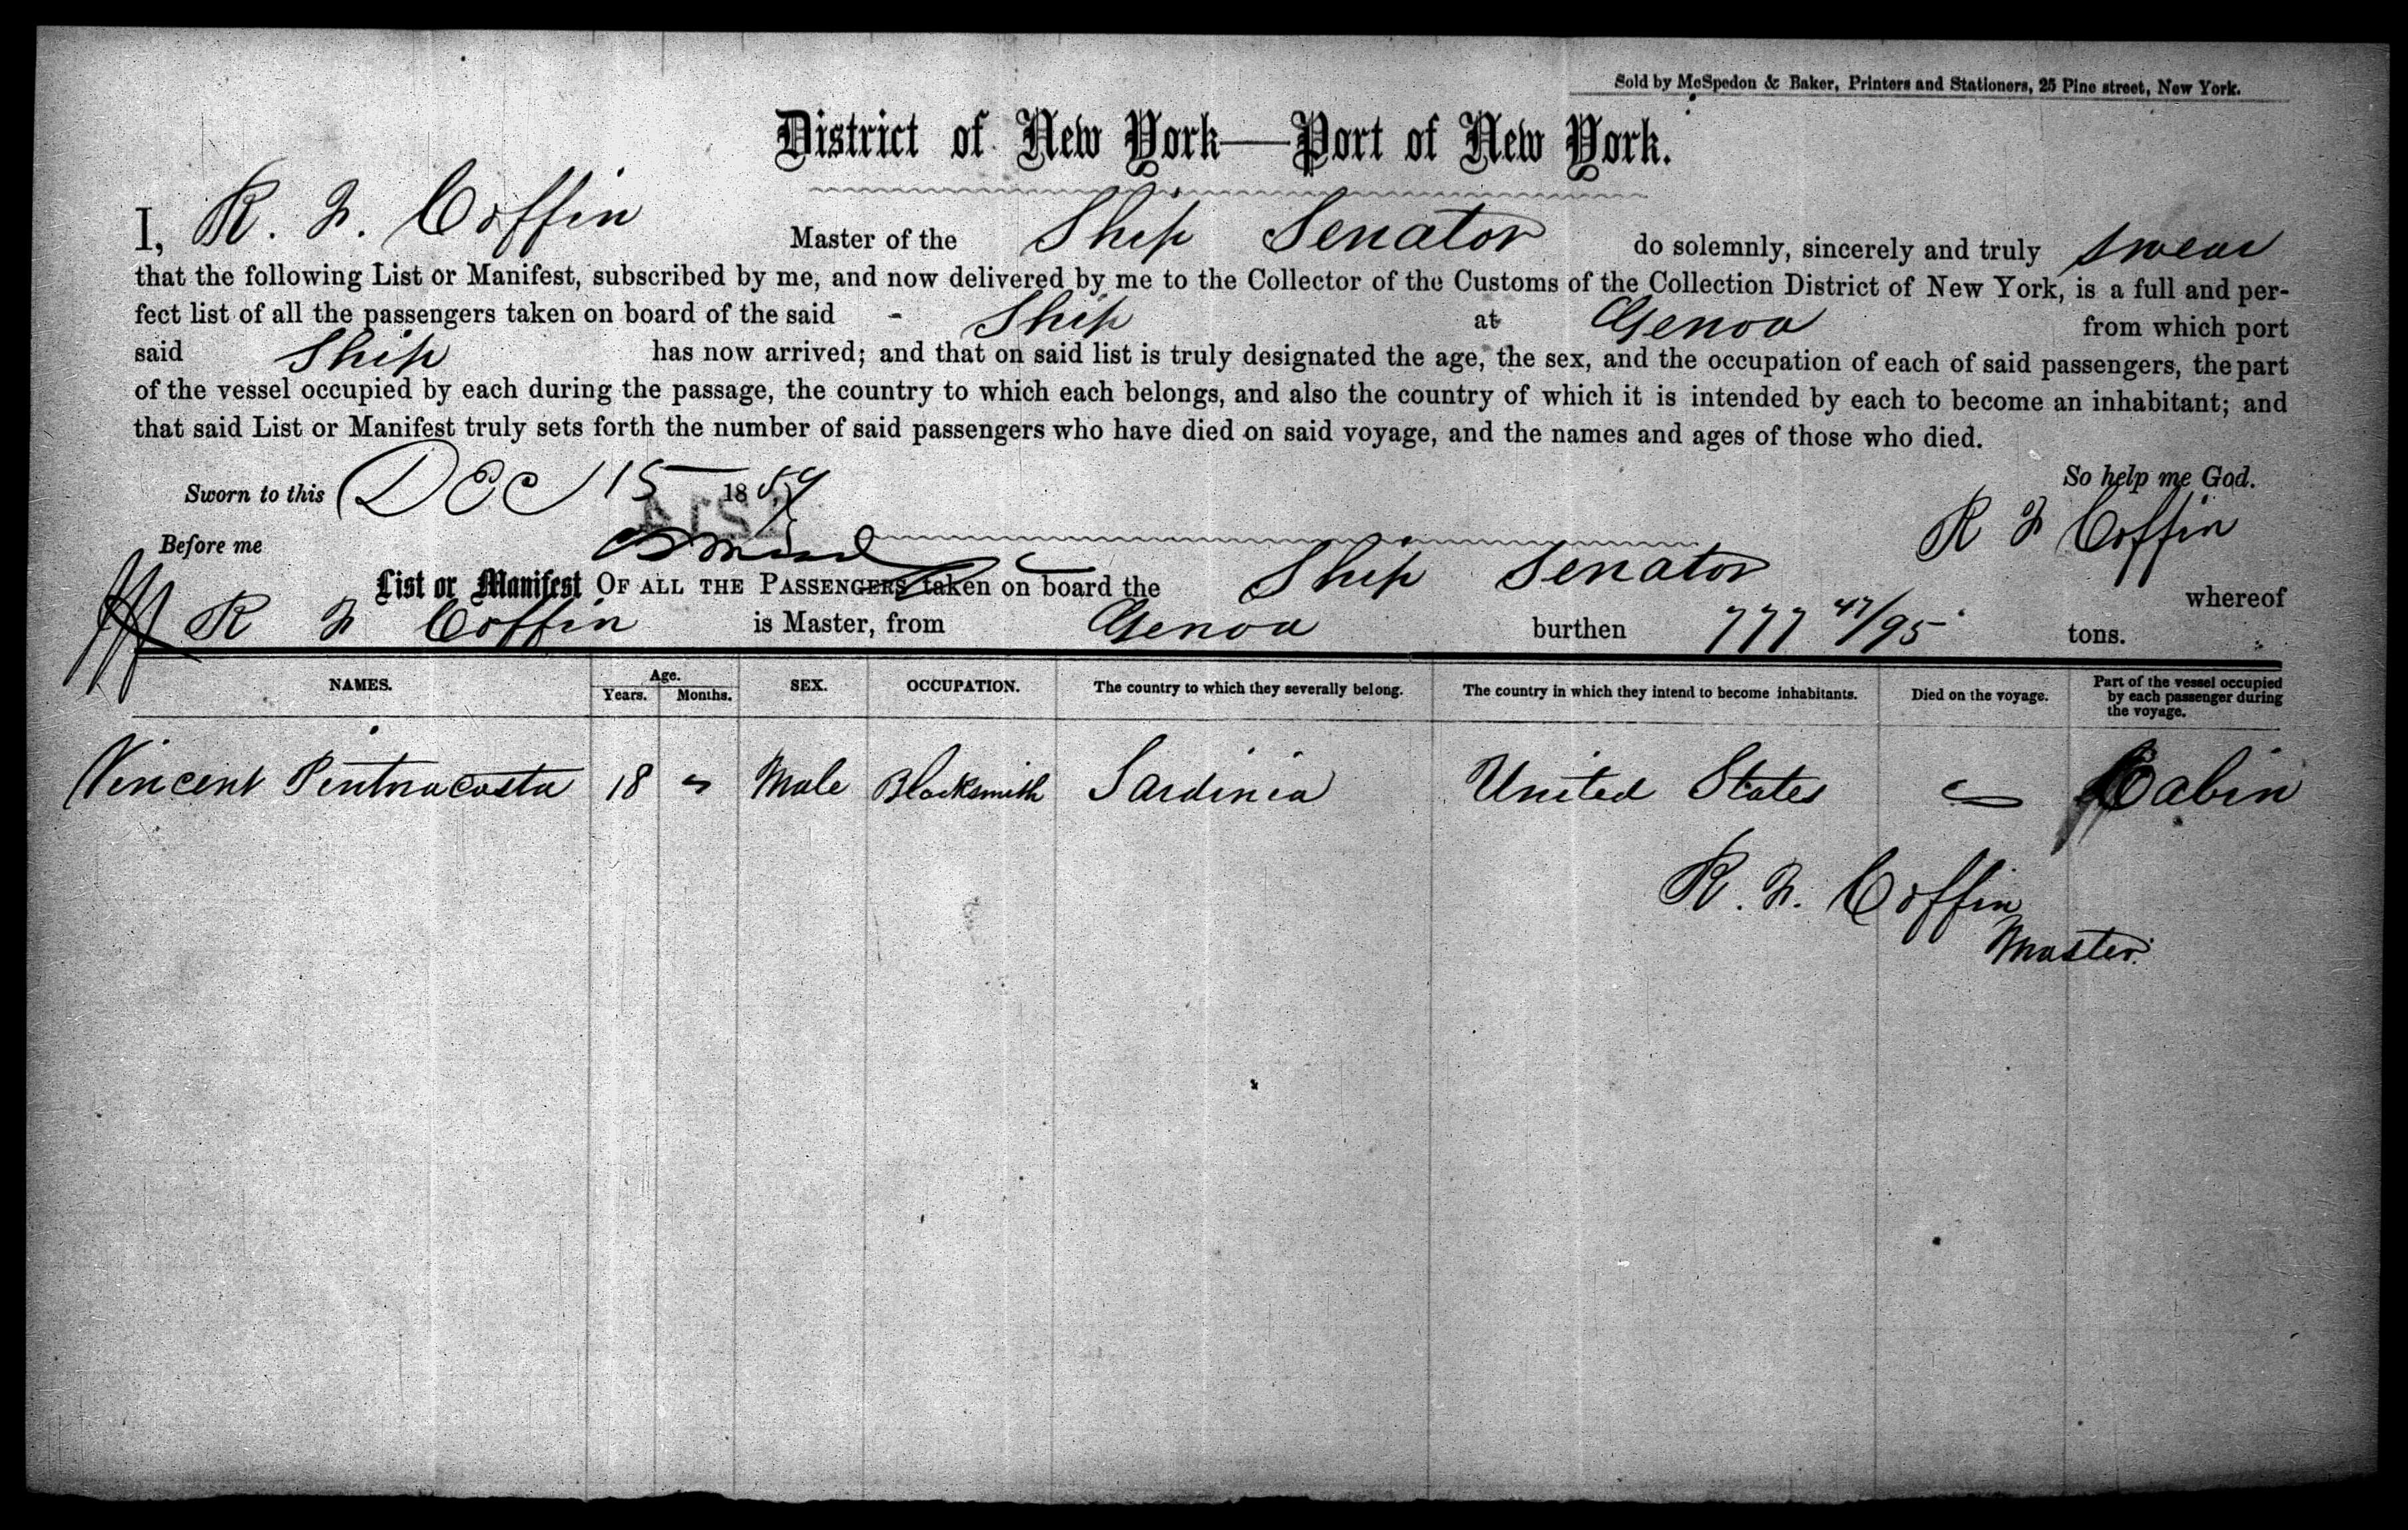 Sold by McSpedon & Baker, Printers and Stationers, 25 Pine street, New York.
District of New York—Port of New York.
I, R. F. Coffin Master of the Ship Senator do solemnly, sincerely and truly swear
that the following List or Manifest, subscribed by me, and now delivered by me to the Collector of the Customs of the Collection District of New York, is a full and per-
fect list of all the passengers taken on board of the said - Ship at Genoa from which port
said Ship has now arrived; and that on said list is truly designated the age, the sex, and the occupation of each of said passengers, the part
of the vessel occupied by each during the passage, the country to which each belongs, and also the country of which it is intended by each to become an inhabitant; and
that said List or Manifest truly sets forth the number of said passengers who have died on said voyage, and the names and ages of those who died.
Sworn to this Dec 15 1859 So help me God.
Before me R F Coffin
List or Manifest OF ALL THE PASSENGERS taken on board the Ship Senator whereof
R F Coffin is Master, from Genoa burthen 777 47/95 tons.
NAMES. Age. Years. Months. SEX. OCCUPATION. The country to which they severally belong. The country in which they intend to become inhabitants. Died on the voyage. Part of the vessel occupied by each passenger during the voyage.
Vincent Pentnacosta 18 " Male Blacksmith Sardinia United States — Cabin
R. F. Coffin
Master.